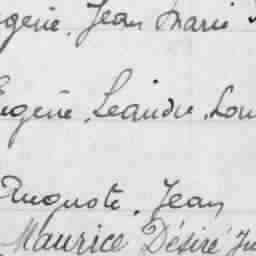 Jean Marie
Eugène, Léandre, Lou
Auguste, Jean
Maurice Désiré Ju